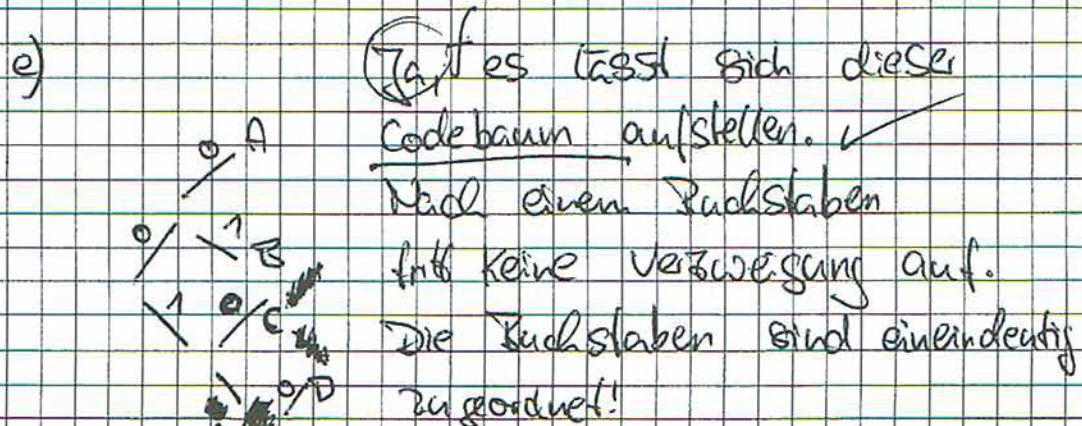 e) Ja, es lässt sich dieser
Codebaum aufstellen. ✓
Nach einem Buchstaben
tritt keine Verzweigung auf.
Die Buchstaben sind eineindeutig
zugeordnet!
0 A
0 1 B
1 0 C
0 D